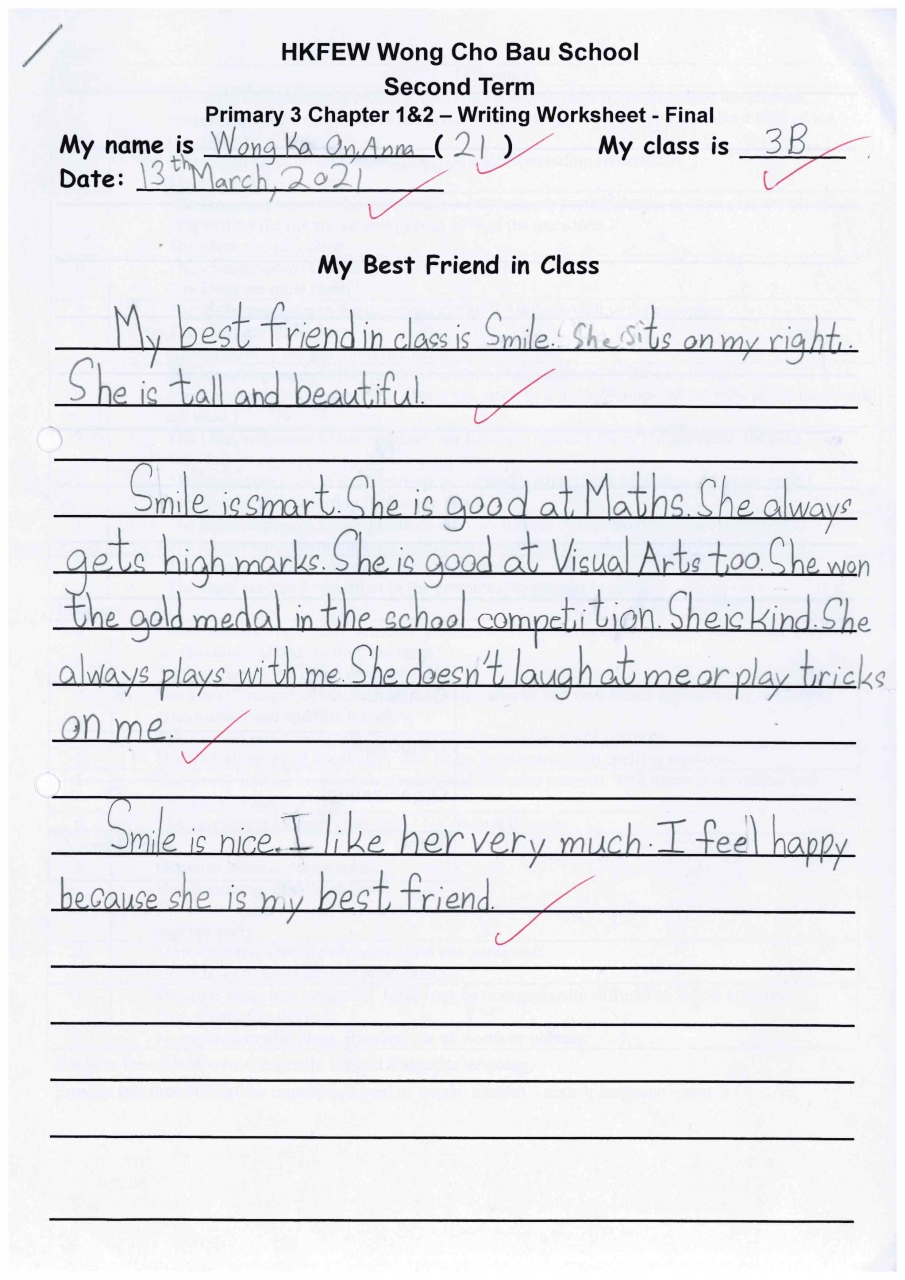 HKFEW Wong Cho Bau School
Second Term
Primary 3 Chapter 1&2 – Writing Worksheet - Final
My name is Wong Ka On, Anna ( 21 ) My class is 3B
Date: 13th March, 2021
My Best Friend in Class
My best friend in class is Smile. She sits on my right.
She is tall and beautiful.
Smile is smart. She is good at Maths. She always
gets high marks. She is good at Visual Arts too. She won
the gold medal in the school competition. She is kind. She
always plays with me. She doesn't laugh at me or play tricks
on me.
Smile is nice. I like her very much. I feel happy
because she is my best friend.